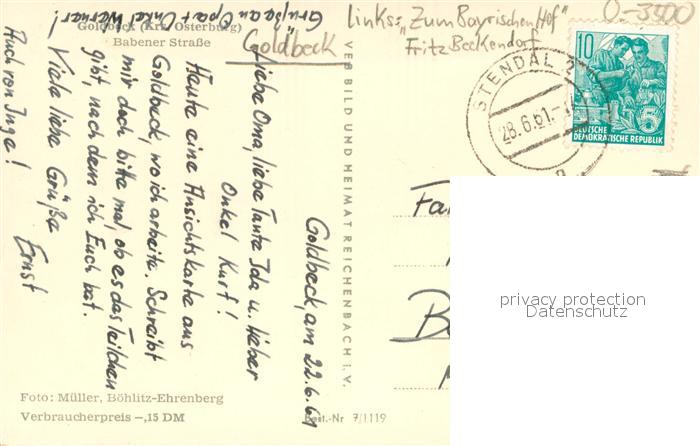 Goldbeck (Krs. Osterburg)
Babener Straße
Goldbeck
Links: "Zum Bayrischen Hof"
Fritz Beckendorf
O-3500
10
DEUTSCHE
DEMOKRATISCHE REPUBLIK
5
STENDAL 2
28.6.61.-
VEB BILD UND HEIMAT REICHENBACH I. V.
Goldbeck, am 22.6.61
Liebe Oma, liebe Tante Ida u. lieber
Onkel Kurt!
Heute eine Ansichtskarte aus
Goldbeck, wo ich arbeite. Schreibt
mir doch bitte mal, ob es das Teilchen
gibt, nach dem ich Euch bat.
Viele liebe Grüße
Ernst
Auch von Inge!
Grüße an Opa + Onkel Werner!
Foto: Müller, Böhlitz-Ehrenberg
Verbraucherpreis -,15 DM
Best.-Nr 7/1119
Fa
B
privacy protection
Datenschutz